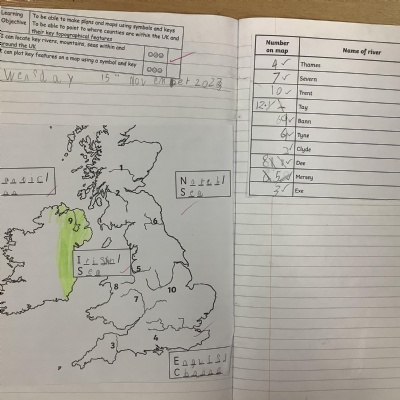 Learning Objective
To be able to make plans and maps using symbols and keys
To be able to point to where counties are within the UK and
their key topographical features
I can locate key rivers, mountains, seas within and
around the UK
I can plot key features on a map using a symbol and key
Wensday 15th November 2023
1
2
Noreth
Sea
9
6
Irishn
Sea
5
8
10
7
4
3
Number on map
Name of river
4 Thames
7 Severn
10 Trent
Tay
9 Bann
6 Tyne
Clyde
8 Dee
5 Mersey
3 Exe